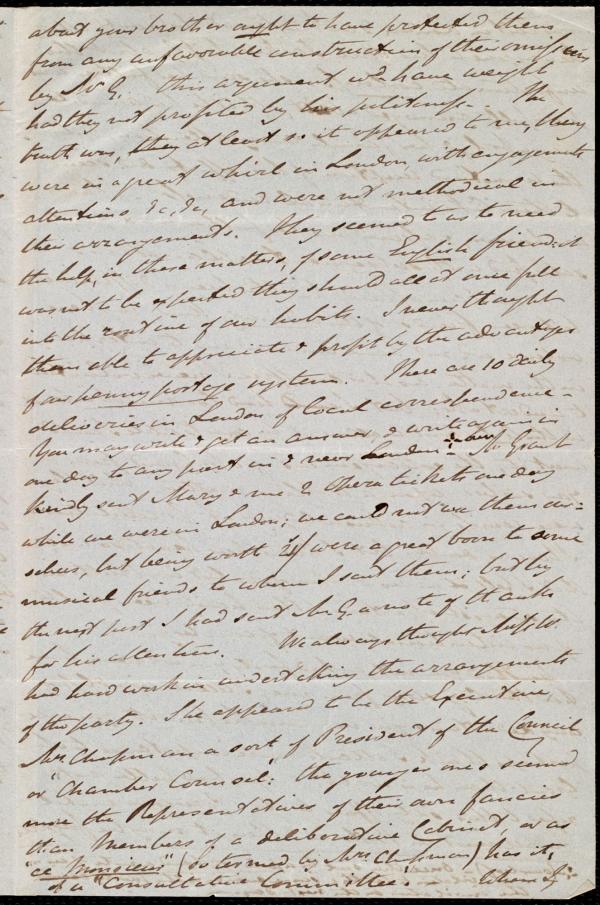 about your brother ought to have protected them
from any unfavourable construction of their omission
by Mr G. this argument wd have weight
had they not profited by his politeness. The
truth was, they at least so it appeared to me, they
were in a great whirl in London with engagements
attentions, &c, &c, and were not methodical in
their arrangements. They seemed to us to need
the help, in these matters, of some English friend: it
was not to be expected they should all at once fall
into the routine of our habits. I never thought
them able to appreciate & profit by the advantages
of our penny postage system. There are 10 daily
deliveries in London of local correspondence –
You may write & get an answer & write again in
one day to any part in & near London. Mr Grant
kindly sent Mary & me 2 Opera tickets one day
while we were in London; we could not use them our=
selves, but being worth were a great boon to some
musical friends to whom I sent them; but by
the next post I had sent Mr G a note of thanks
for his attention. We always thought Miss W
had hard work in undertaking the arrangements
of the party. She appeared to be the Executive
Mrs Chapman a sort of President of the Council
or "Chamber Counsel": the younger ones seemed
more the Representatives of their own fancies
than Members of a deliberative Cabinet, or as
"ce Monsieur" (so termed by Mrs Chapman) has it,
of a "Consultative Committee". When I